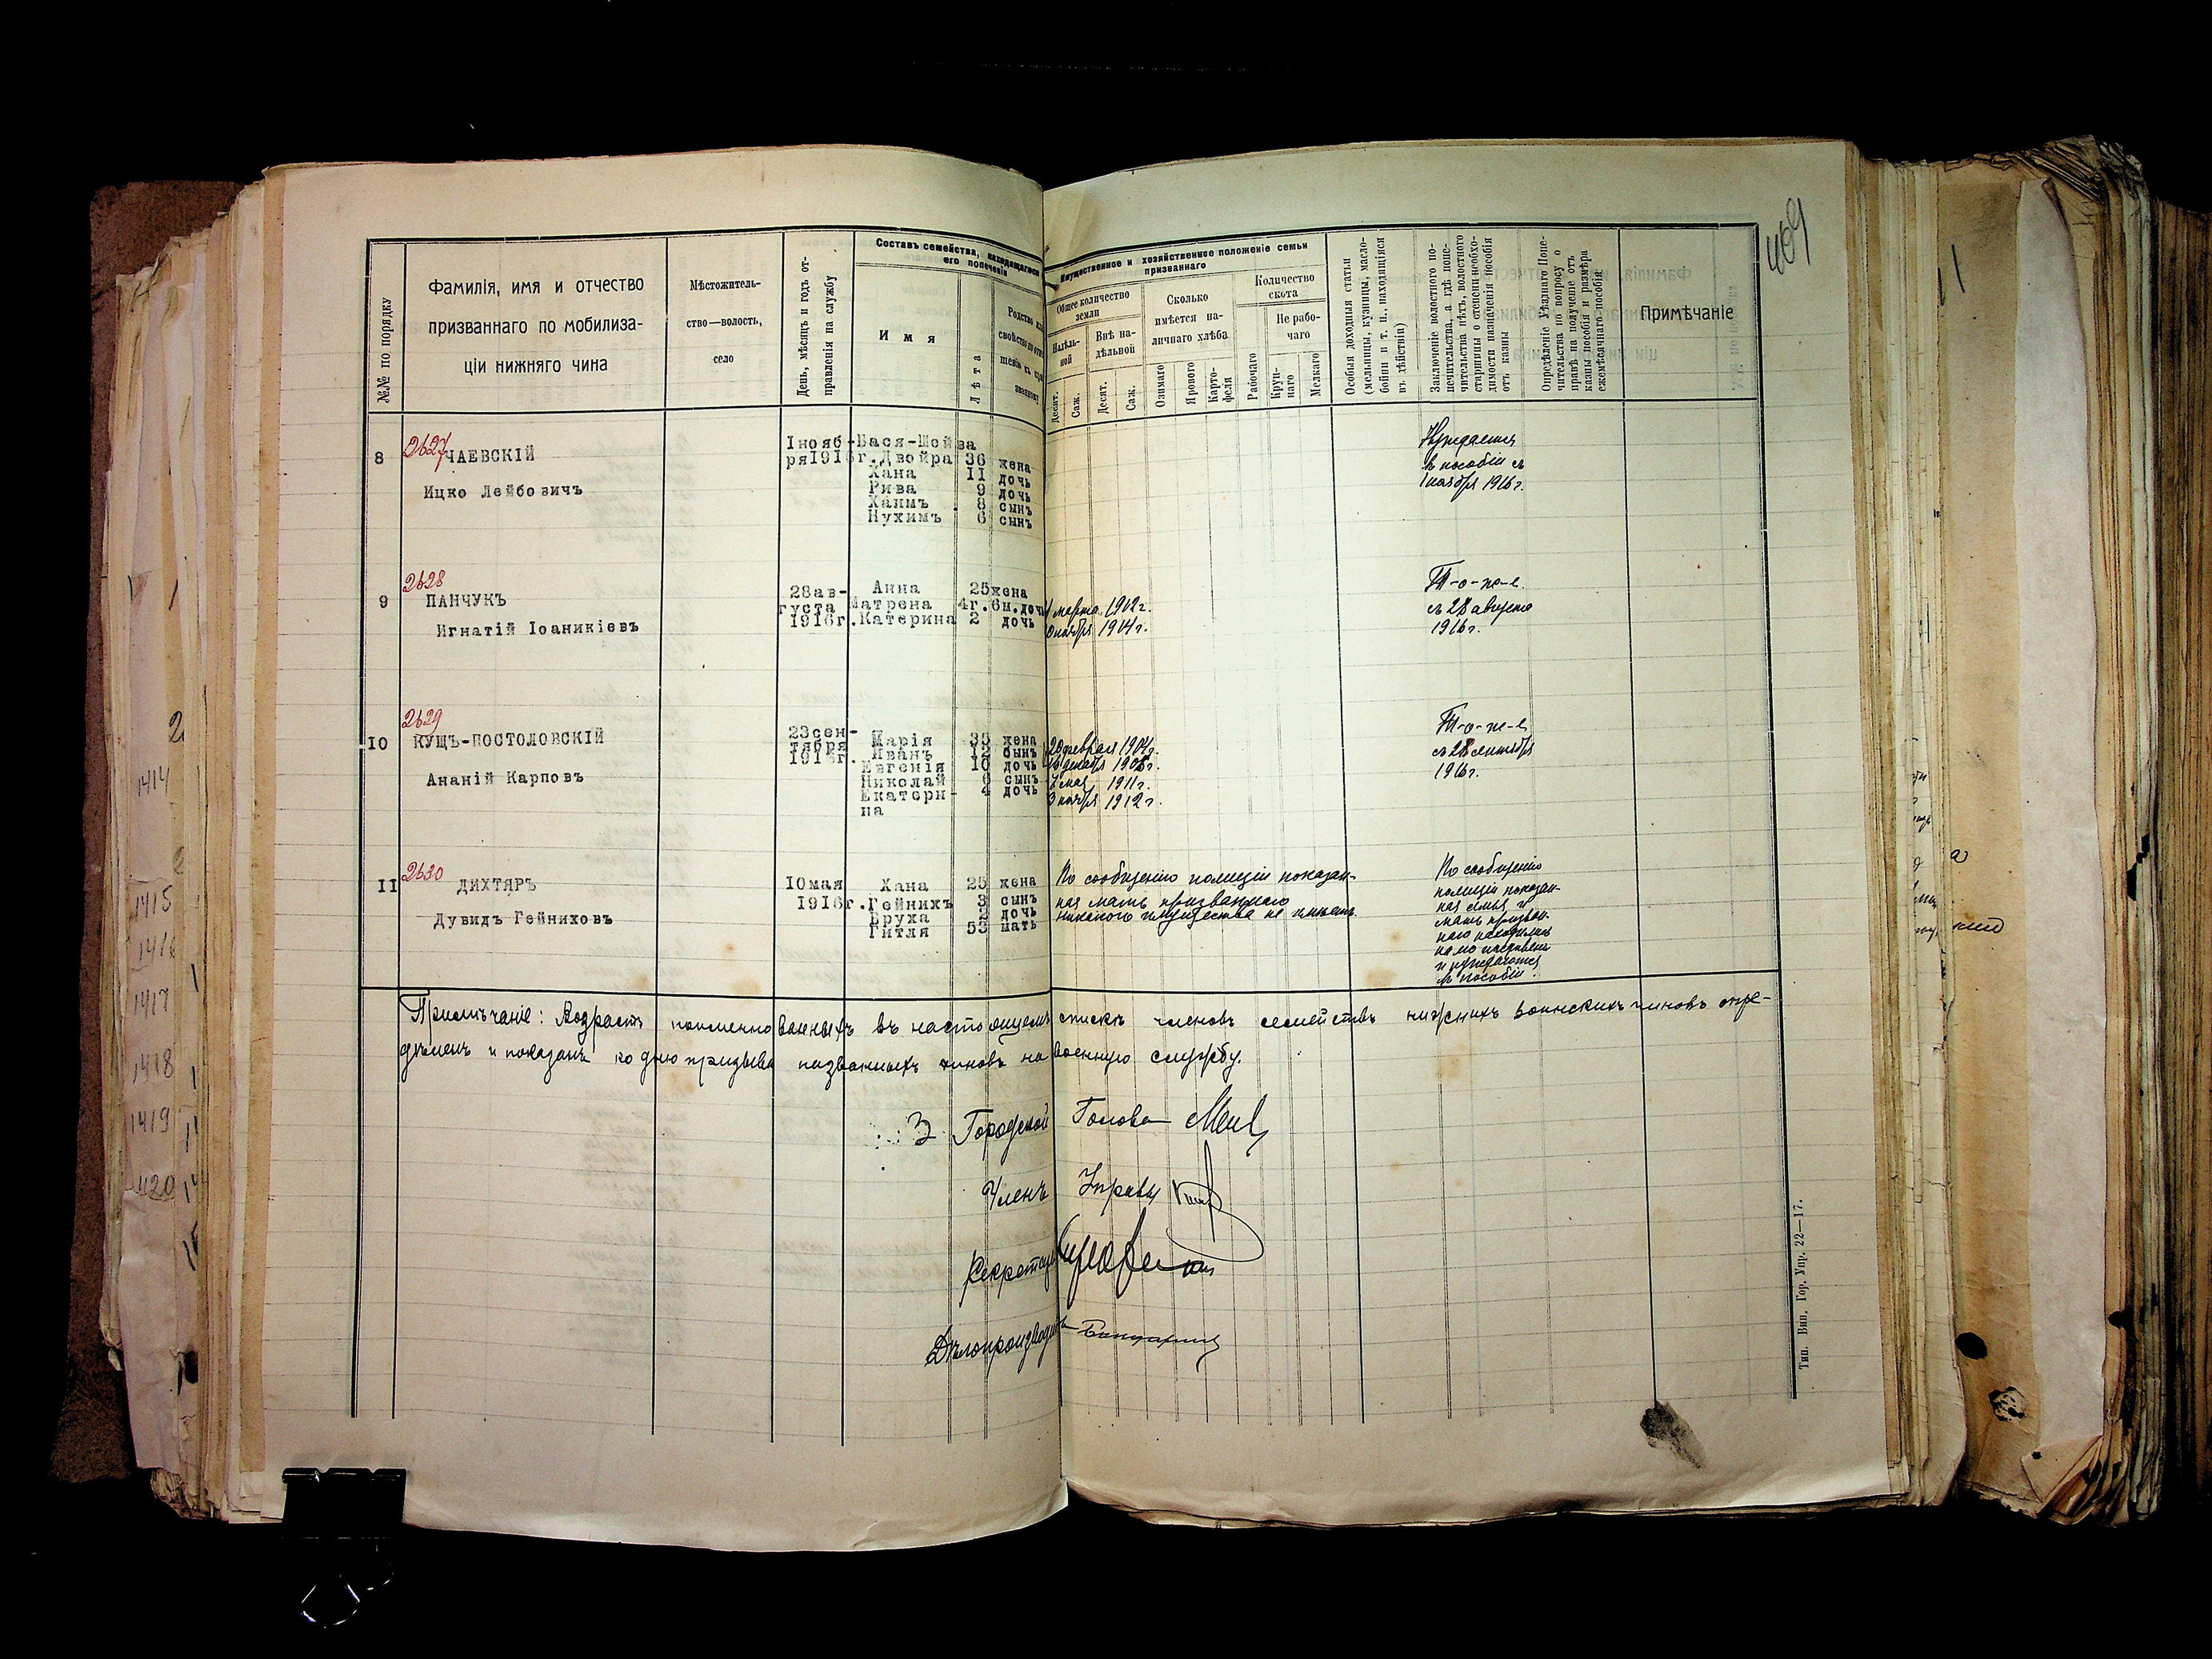 409
№№ по порядку
Фамилія, имя и отчество
призваннаго по мобилиза-
ціи нижняго чина
Мѣстожитель-
ство—волость,
село
День, мѣсяцъ и годъ от-
правленія на службу
Составъ семейства, находящагося
его попеченіи
Имя
Лѣта
Родство или
свойство по отно-
шенію къ при-
званному
Имущественное и хозяйственное положеніе семьи
призваннаго
Общее количество
земли
Надѣль-
ной
Внѣ на-
дѣльной
Десят.
Саж.
Десят.
Саж.
Сколько
имѣется на-
личнаго хлѣба
Озимаго
Ярового
Карто-
феля
Количество
скота
Рабочаго
Не рабо-
чаго
Круп-
наго
Мелкаго
Особыя доходныя статьи
(мельницы, кузницы, масло-
бойни и т. п., находящіяся
въ дѣйствіи)
Заключеніе волостного по-
печительства, а гдѣ попе-
чительства нѣтъ, волостного
старшины о степени необхо-
димости назначенія пособія
отъ казны
Опредѣленіе Уѣзднаго Попе-
чительства по вопросу о
правѣ на полученіе отъ
казны пособія и размѣра
ежемѣсячнаго пособія.
Примѣчаніе
8
2627
ЧАЕВСКІЙ
Ицко Лейбовичъ
1нояб-
ря1916г.
Бася-Шойва
Двойра 36 жена
Хана 11 дочь
Рива 9 дочь
Хаимъ 8 сынъ
Нухимъ 6 сынъ
Нуждается
въ пособіи съ
1 ноября 1916 г.
9
2628
ПАНЧУКЪ
Игнатій Іоаникіевъ
28ав-
густа
1916г.
Анна 25 жена
Матрена 4г.6м. дочь
Катерина 2 дочь
1 марта 1912 г.
ноября 1914 г.
Т-о-же-
съ 28 августа
1916 г.
10
2629
КУЩЪ-ПОСТОЛОВСКІЙ
Ананій Карповъ
23сен-
тября
1916г.
Марія 35 жена
Иванъ 12 сынъ
Евгенія 10 дочь
Николай 6 сынъ
Екатери- 4 дочь
на
20 февраля 1904 г.
декабря 1906 г.
7 мая 1911 г.
3 ноября 1912 г.
Т-о-же-
съ 23 сентября
1916 г.
11
2630
ДИХТЯРЪ
Дувидъ Гейниховъ
10мая
1916г.
Хана 25 жена
Гейнихъ 3 сынъ
Бруха 2 дочь
Гитля 53 мать
По сообщенію полиціи показан-
ная мать призваннаго
никакого имущества не имѣетъ.
По сообщенію
полиціи показан-
ная семья и
мать призван-
наго находились
на его иждивеніи
и нуждаются
въ пособіи.
Примѣчаніе: Возрастъ поименованныхъ въ настоящемъ спискѣ членовъ семействъ нижнихъ воинскихъ чиновъ опре-
дѣленъ и показанъ ко дню призыва названныхъ чиновъ на военную службу.
З Городской Голова
Членъ Управы
Секретарь
Дѣлопроизводитель
Тип. Вин. Гор. Упр. 22—17.
1414
1415
1416
1417
1418
1419
1420